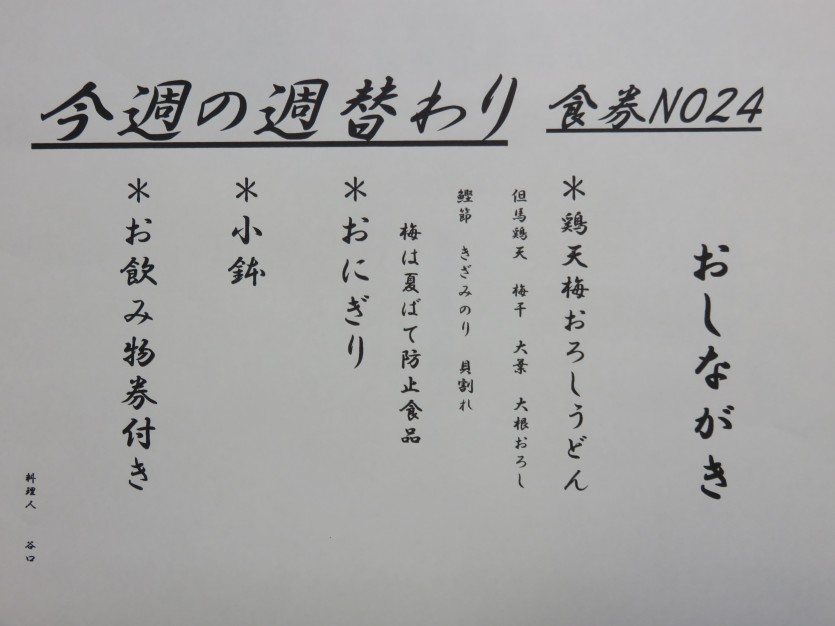 今週の週替わり
食券NO24
おしながき
＊鶏天梅おろしうどん
但馬鶏天 梅干 大葉 大根おろし
鰹節 きざみのり 貝割れ
梅は夏ばて防止食品
＊おにぎり
＊小鉢
＊お飲み物券付き
料理人 谷口